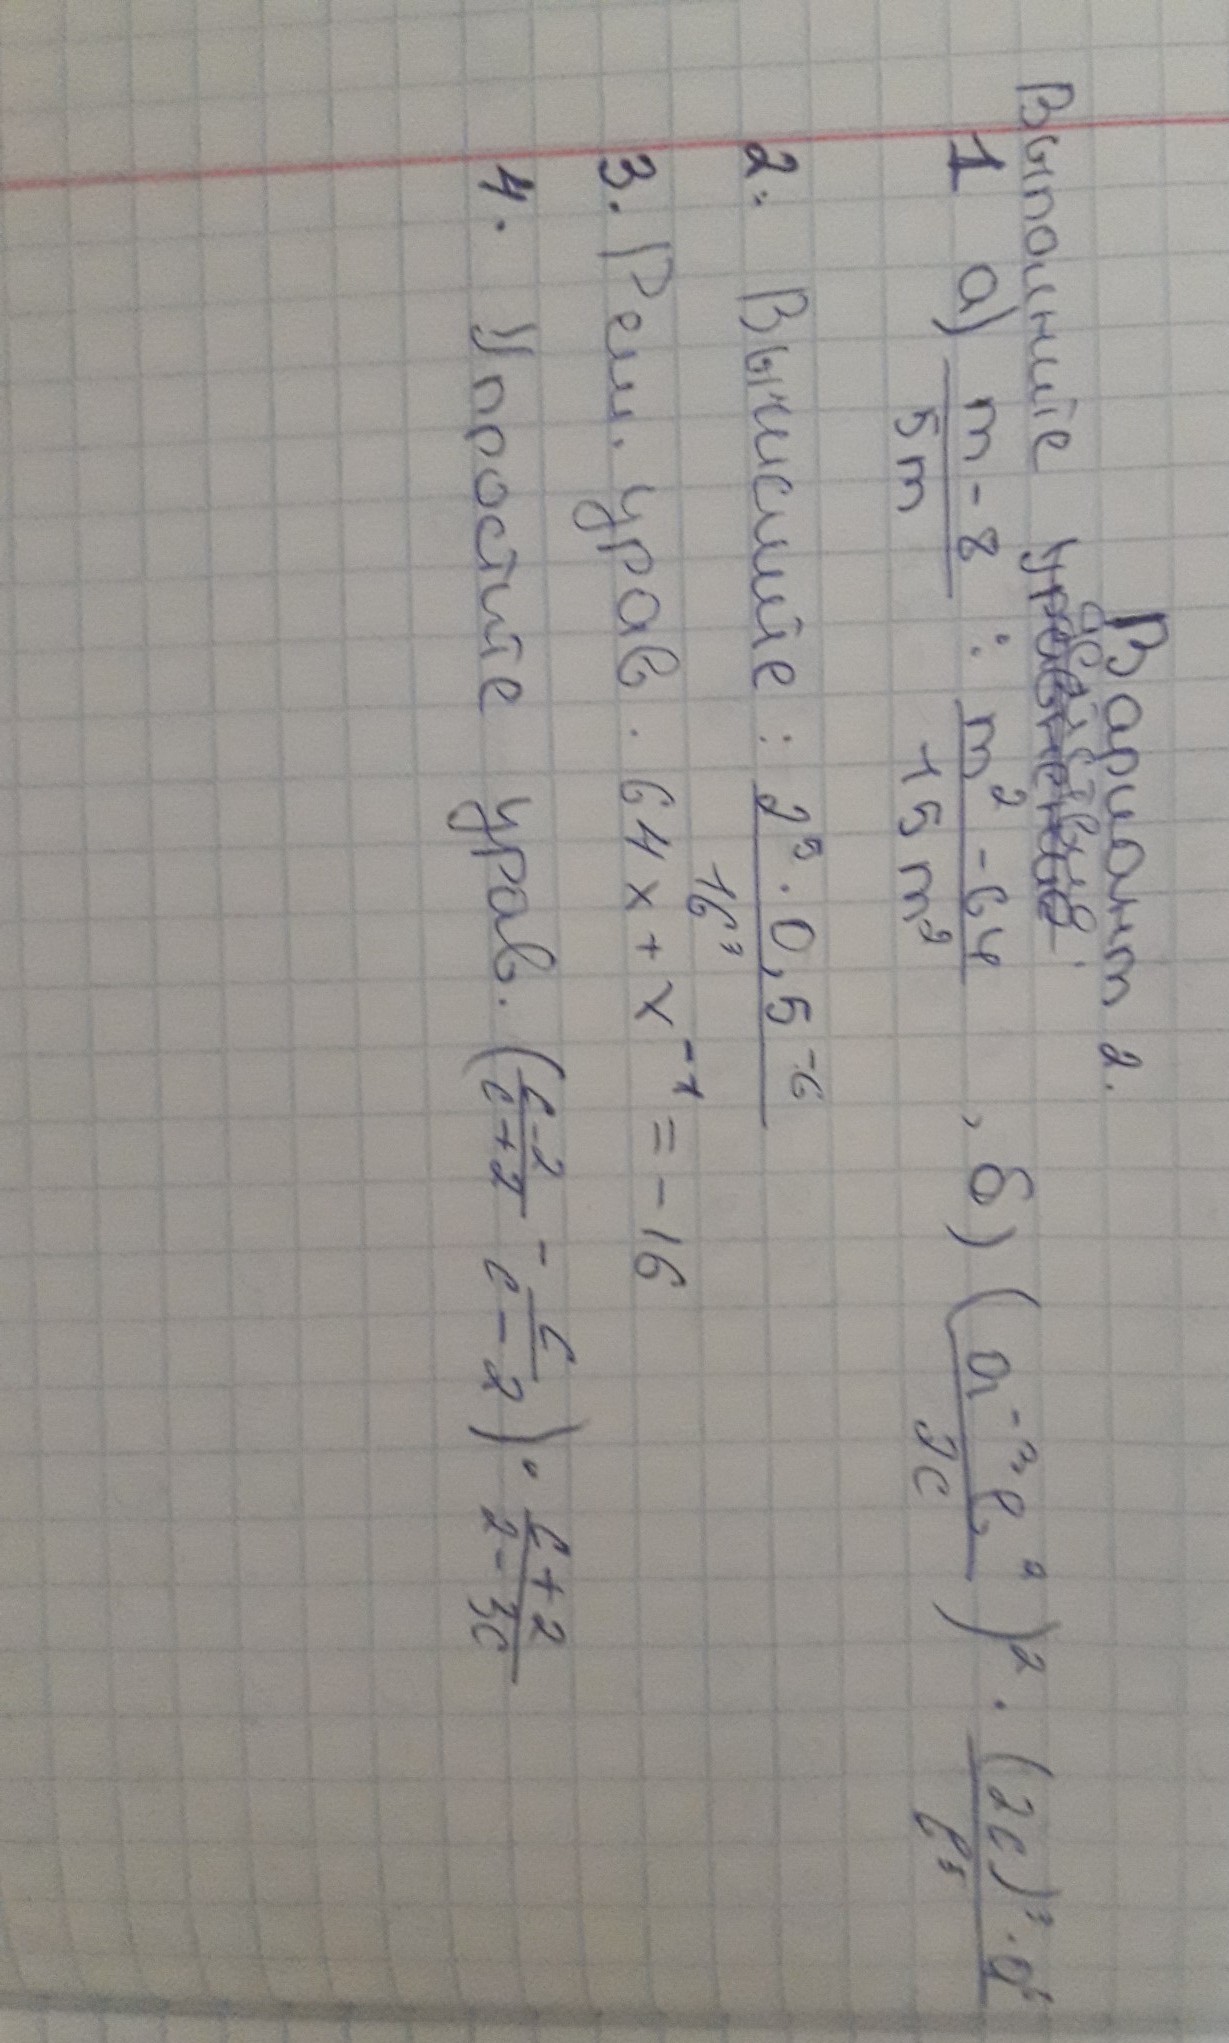 Вариант 2.
Выполните действия.
1 а) (m-8)/(5m) : (m²-64)/(15m²) , б) ((a⁻³b²)/(2c))² · ((2c)³·a⁶)/b³
2. Вычислите : (2⁵·0,5⁻⁶)/16³
3. Реш. урав. 64x+x⁻¹=-16
4. Упростите урав. ((c-2)/(c+2) - c/(c-2)) · (c+2)/(2-3c)